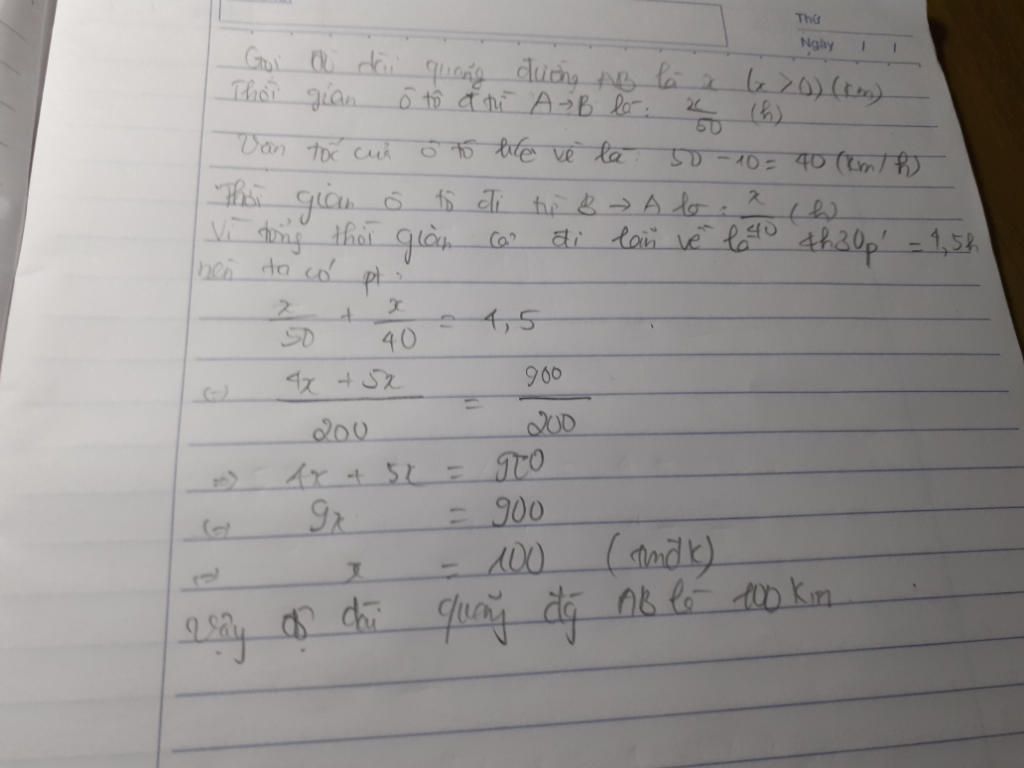 Thứ
Ngày / /
Gọi độ dài quãng đường AB là x (x > 0) (km)
Thời gian ô tô đi từ A→B là: x/50 (h)
Vận tốc của ô tô lúc về là: 50 - 10 = 40 (km/h)
Thời gian ô tô đi từ B → A là: x/40 (h)
Vì tổng thời gian cả đi lẫn về là 4h30p' = 4,5h
nên ta có pt:
x/50 + x/40 = 4,5
(=) (4x + 5x)/200 = 900/200
=) 4x + 5x = 900
(=) 9x = 900
(=) x = 100 (tmđk)
Vậy độ dài quãng đg AB là 100 km